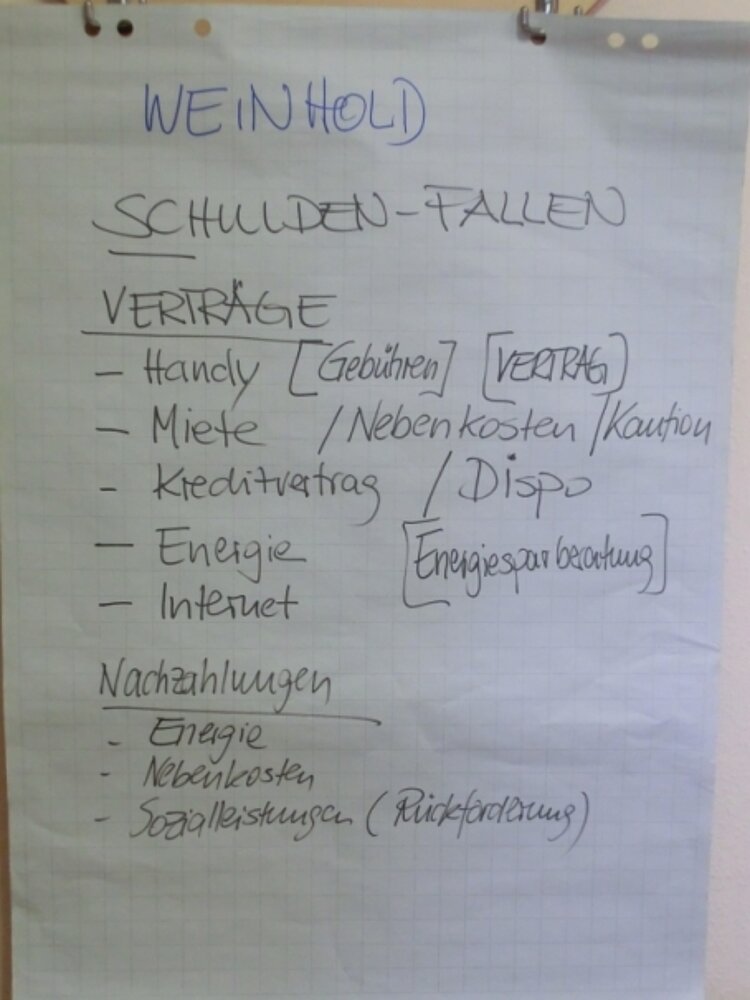 WEINHOLD
SCHULDEN-FALLEN
VERTRÄGE
- Handy [Gebühren] [VERTRAG]
- Miete /Nebenkosten /Kaution
- Kreditvertrag / Dispo
- Energie [Energiesparberatung]
- Internet
Nachzahlungen
- Energie
- Nebenkosten
- Sozialleistungen (Rückforderung)